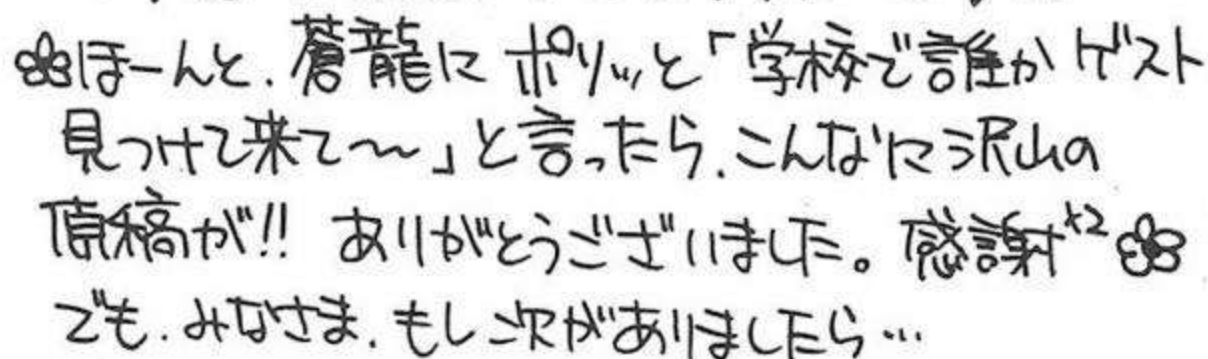 ほーんと、蒼龍にポリッと「学校で誰かゲスト
見つけて来て〜」と言ったら、こんなに沢山の
原稿が!! ありがとうございました。感謝×2
でも、みなさま、もし次がありましたら…